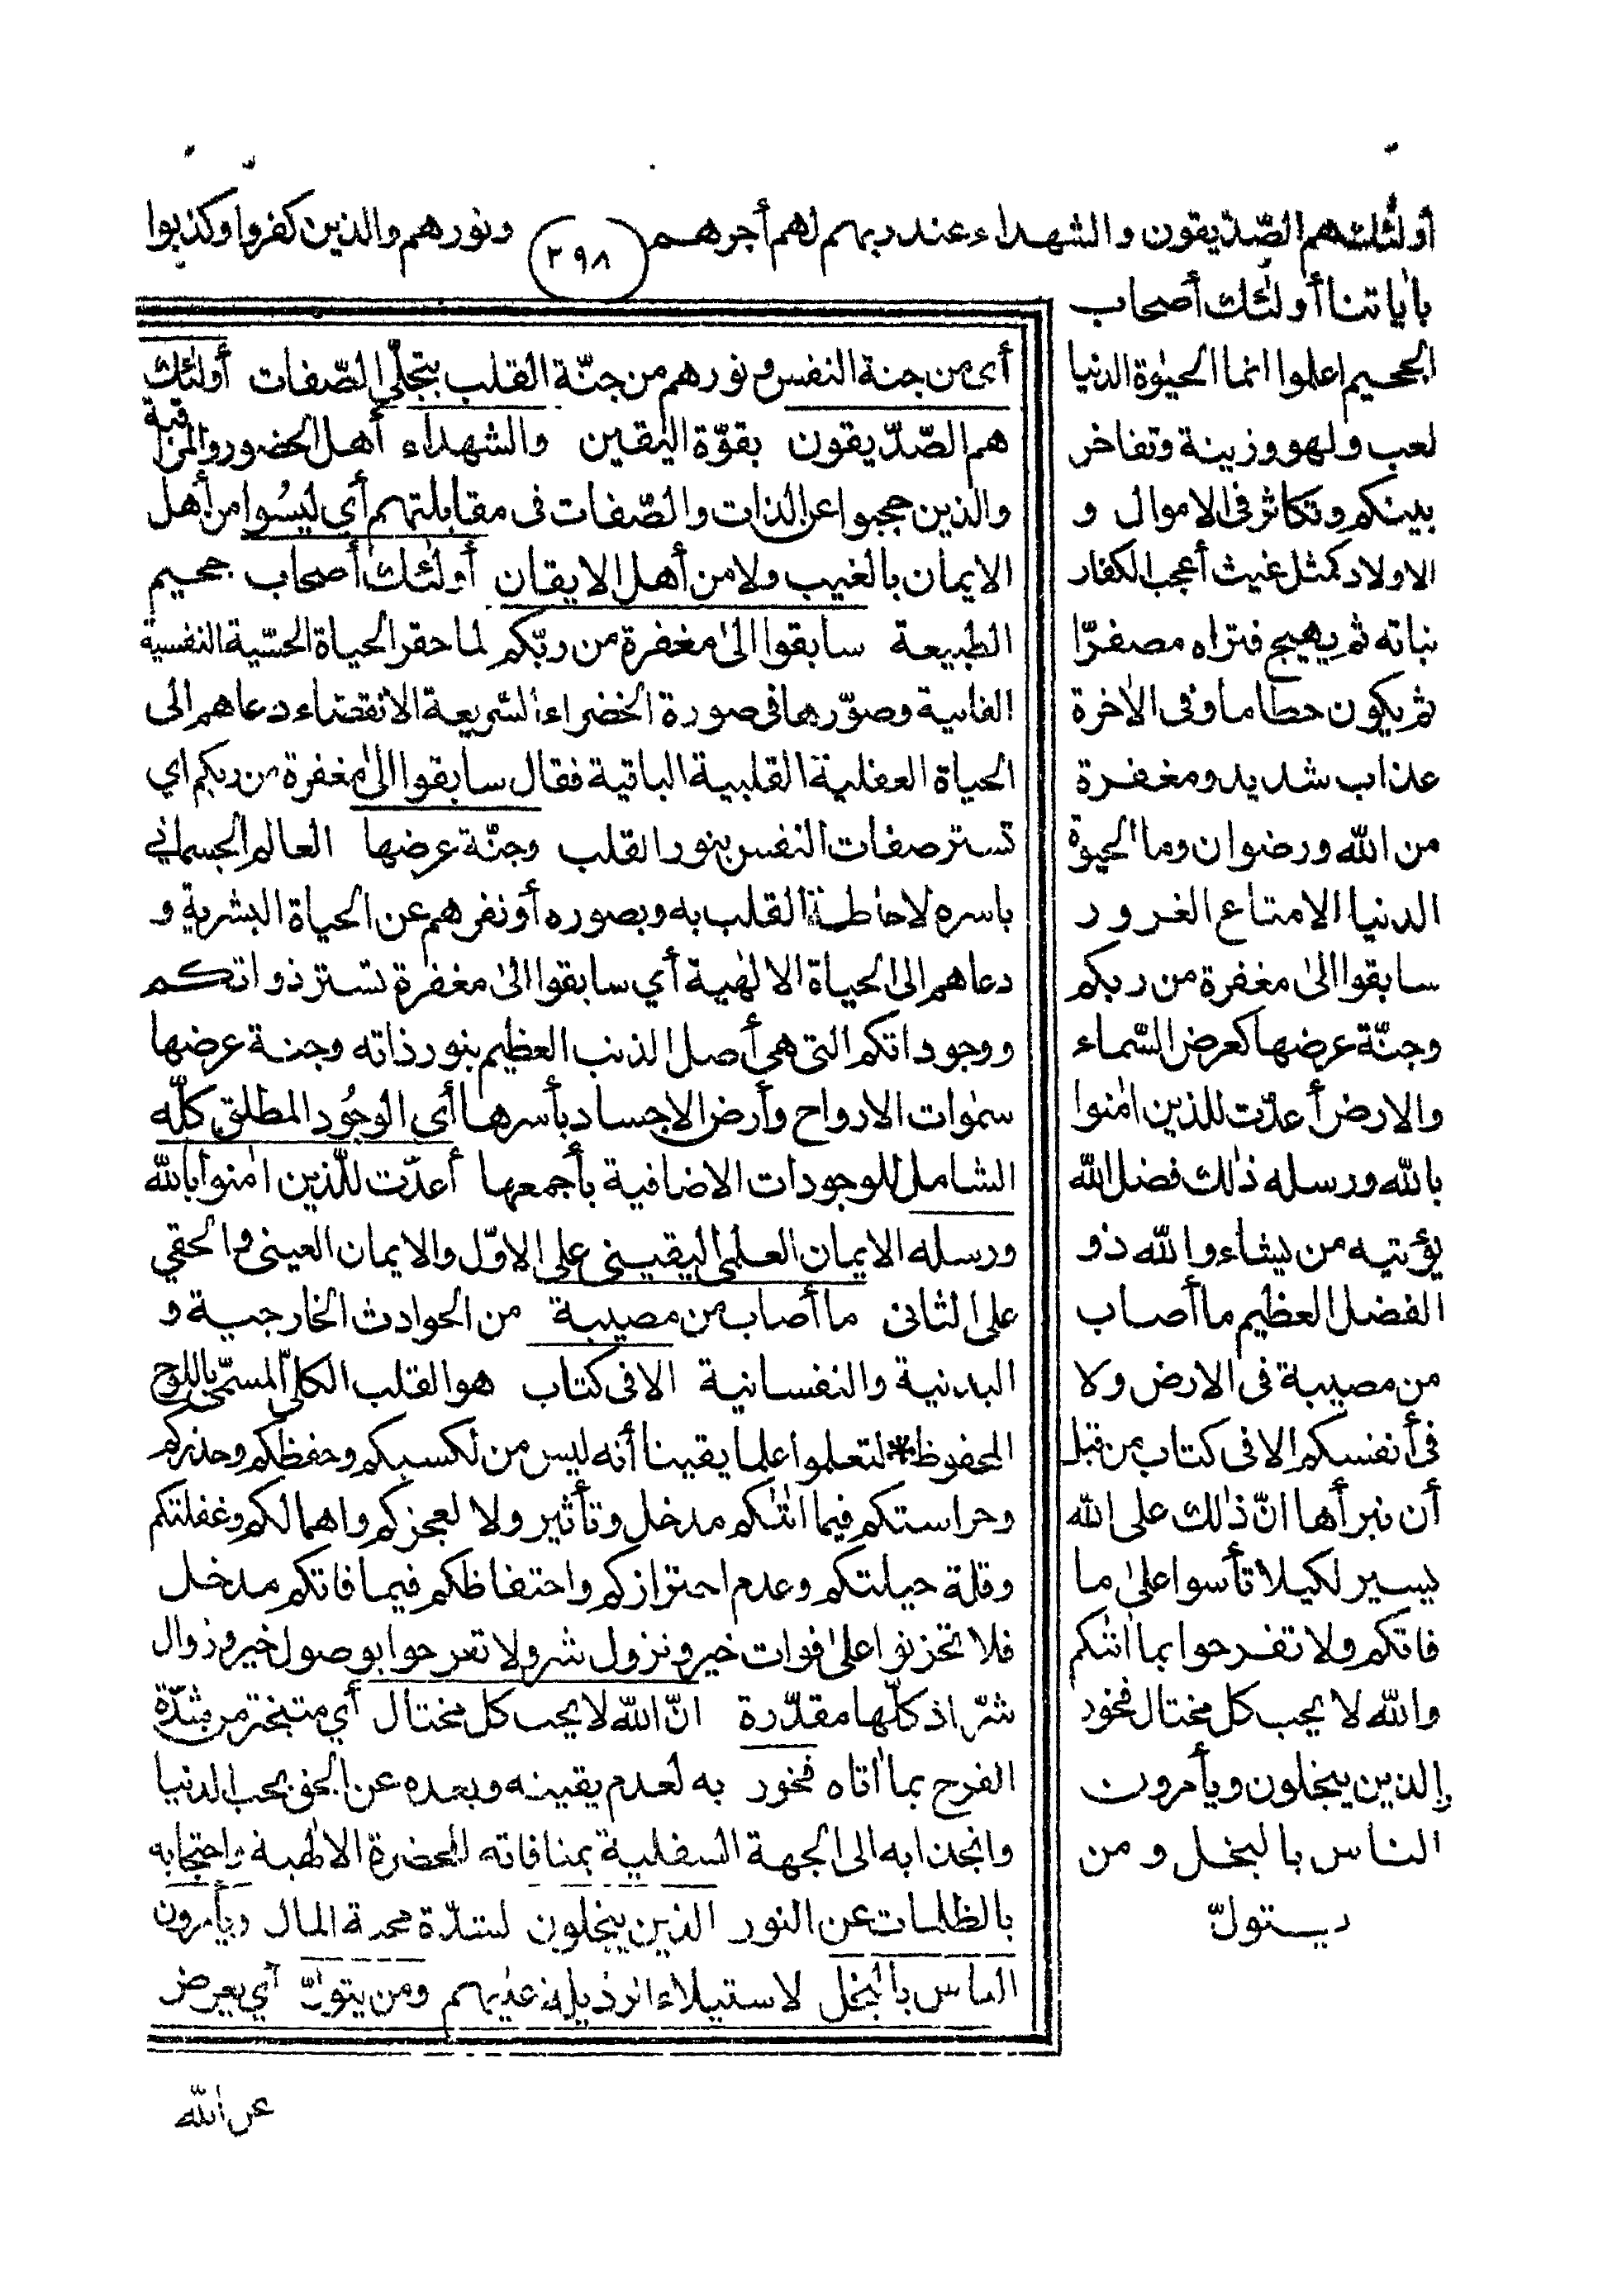 أولئك هم الصّدّيقون والشهداء عند ربهم لهم أجرهم ونورهم والذين كفروا وكذبوا
٢٩٨
بآياتنا أولئك أصحاب
الجحيم اعلموا انما الحيوة الدنيا
لعب ولهو وزينة وتفاخر
بينكم وتكاثر فى الاموال و
الاولاد كمثل غيث أعجب الكفار
نباته ثم يهيج فتراه مصفرّا
ثم يكون حطاما وفى الآخرة
عذاب شديد ومغفرة
من الله ورضوان وما الحيوة
الدنيا الا متاع الغرور
سابقوا الى مغفرة من ربكم
وجنّة عرضها كعرض السّماء
والارض أعدّت للذين اٰمنوا
بالله ورسله ذٰلك فضل الله
يؤتيه من يشاء والله ذو
الفضل العظيم ما أصاب
من مصيبة فى الارض ولا
فى أنفسكم الا فى كتاب من قبل
أن نبرأها انّ ذٰلك على الله
يسير لكيلا تأسوا علىٰ ما
فاتكم ولا تفرحوا بما اٰتٰكم
والله لا يحب كل مختال فخور
الذين يبخلون ويأمرون
الناس بالبخل ومن
يتولّ
أى من جنة النفس ونورهم من جنّة القلب بتجلّي الصّفات أولئك
هم الصّدّيقون بقوّة اليقين والشهداء أهل الحضور والمراقبة
والذين حجبوا عن الذات والصّفات فى مقابلتهم أي ليسُوا من أهل
الايمان بالغيب ولا من أهل الايقان أولئك أصحاب جحيم
الطبيعة سابقوا الىٰ مغفرة من ربّكم لما حقر الحياة الحسّية النفسية
الفانية وصوّرها فى صورة الخضراء السّريعة الانقضاء دعاهم الى
الحياة العقلية القلبية الباقية فقال سابقوا الىٰ مغفرة من ربكم اي
تستر صفات النفس بنور القلب وجنّة عرضها العالم الجسماني
باسره لاحاطة القلب به وبصوره أو نفرهم عن الحياة البشرية و
دعاهم الى الحياة الالٰهية أي سابقوا الىٰ مغفرة تستر ذواتكم
ووجوداتكم التى هى أصل الذنب العظيم بنور ذاته وجنة عرضها
سمٰوات الارواح وأرض الاجساد بأسرها أي الوجُود المطلق كلّه
الشامل للوجودات الاضافية بأجمعها أعدّت للّذين اٰمنوا بالله
ورسله الايمان العلمي اليقينى على الاوّل والايمان العينى والحقي
على الثانى ما أصاب من مصيبة من الحوادث الخارجية و
البدنية والنفسانية الا فى كتاب هو القلب الكلّي المسمّى باللوح
المحفوظ * لتعلموا علما يقينا أنه ليس من لكسبكم وحفظكم وحذركم
وحراستكم فيما اٰتٰكم مدخل وتأثير ولا لعجزكم واهمالكم وغفلتكم
وقلة حيلتكم وعدم احترازكم واحتفاظكم فيما فاتكم مدخل
فلا تحزنوا علىٰ فوات خير ونزول شر ولا تفرحوا بوصول خير وزوال
شرّ اذ كلّها مقدّرة انّ الله لا يحب كل مختال أي متبختر من شدّة
الفرح بما اٰتاه فخور به لعدم يقينه وبعده عن الحق بحب الدنيا
وانجذابه الى الجهة السفلية بمنافاته للحضرة الالٰهية واحتجابه
بالظلمات عن النور الذين يبخلون لشدّة محبة المال ويأمرون
الناس بالبخل لاستيلاء الرذيلة عليهم ومن يتولّ أي يعرض
عن الله